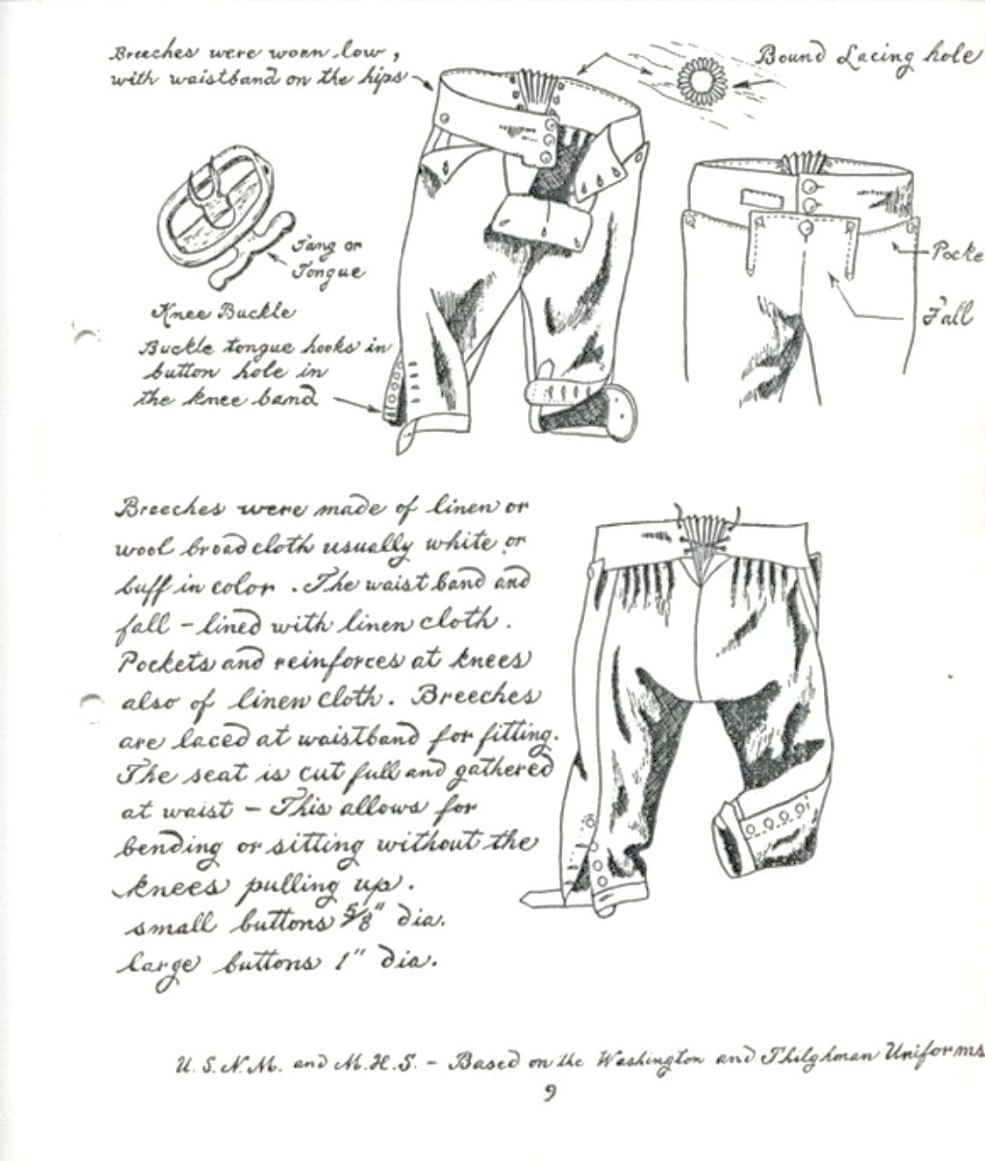 Breeches were worn low,
with waistband on the hips
Bound Lacing hole
Tang or
Tongue
Knee Buckle
Buckle tongue hooks in
button hole in
the knee band
Pocke
Fall
Breeches were made of linen or
wool broadcloth usually white or
buff in color. The waist band and
fall - lined with linen cloth.
Pockets and reinforces at knees
also of linen cloth. Breeches
are laced at waistband for fitting.
The seat is cut full and gathered
at waist - This allows for
bending or sitting without the
knees pulling up.
small buttons 5/8" dia.
large buttons 1" dia.
U.S.N.M. and M.H.S. - Based on the Washington and Thilghman Uniforms
9